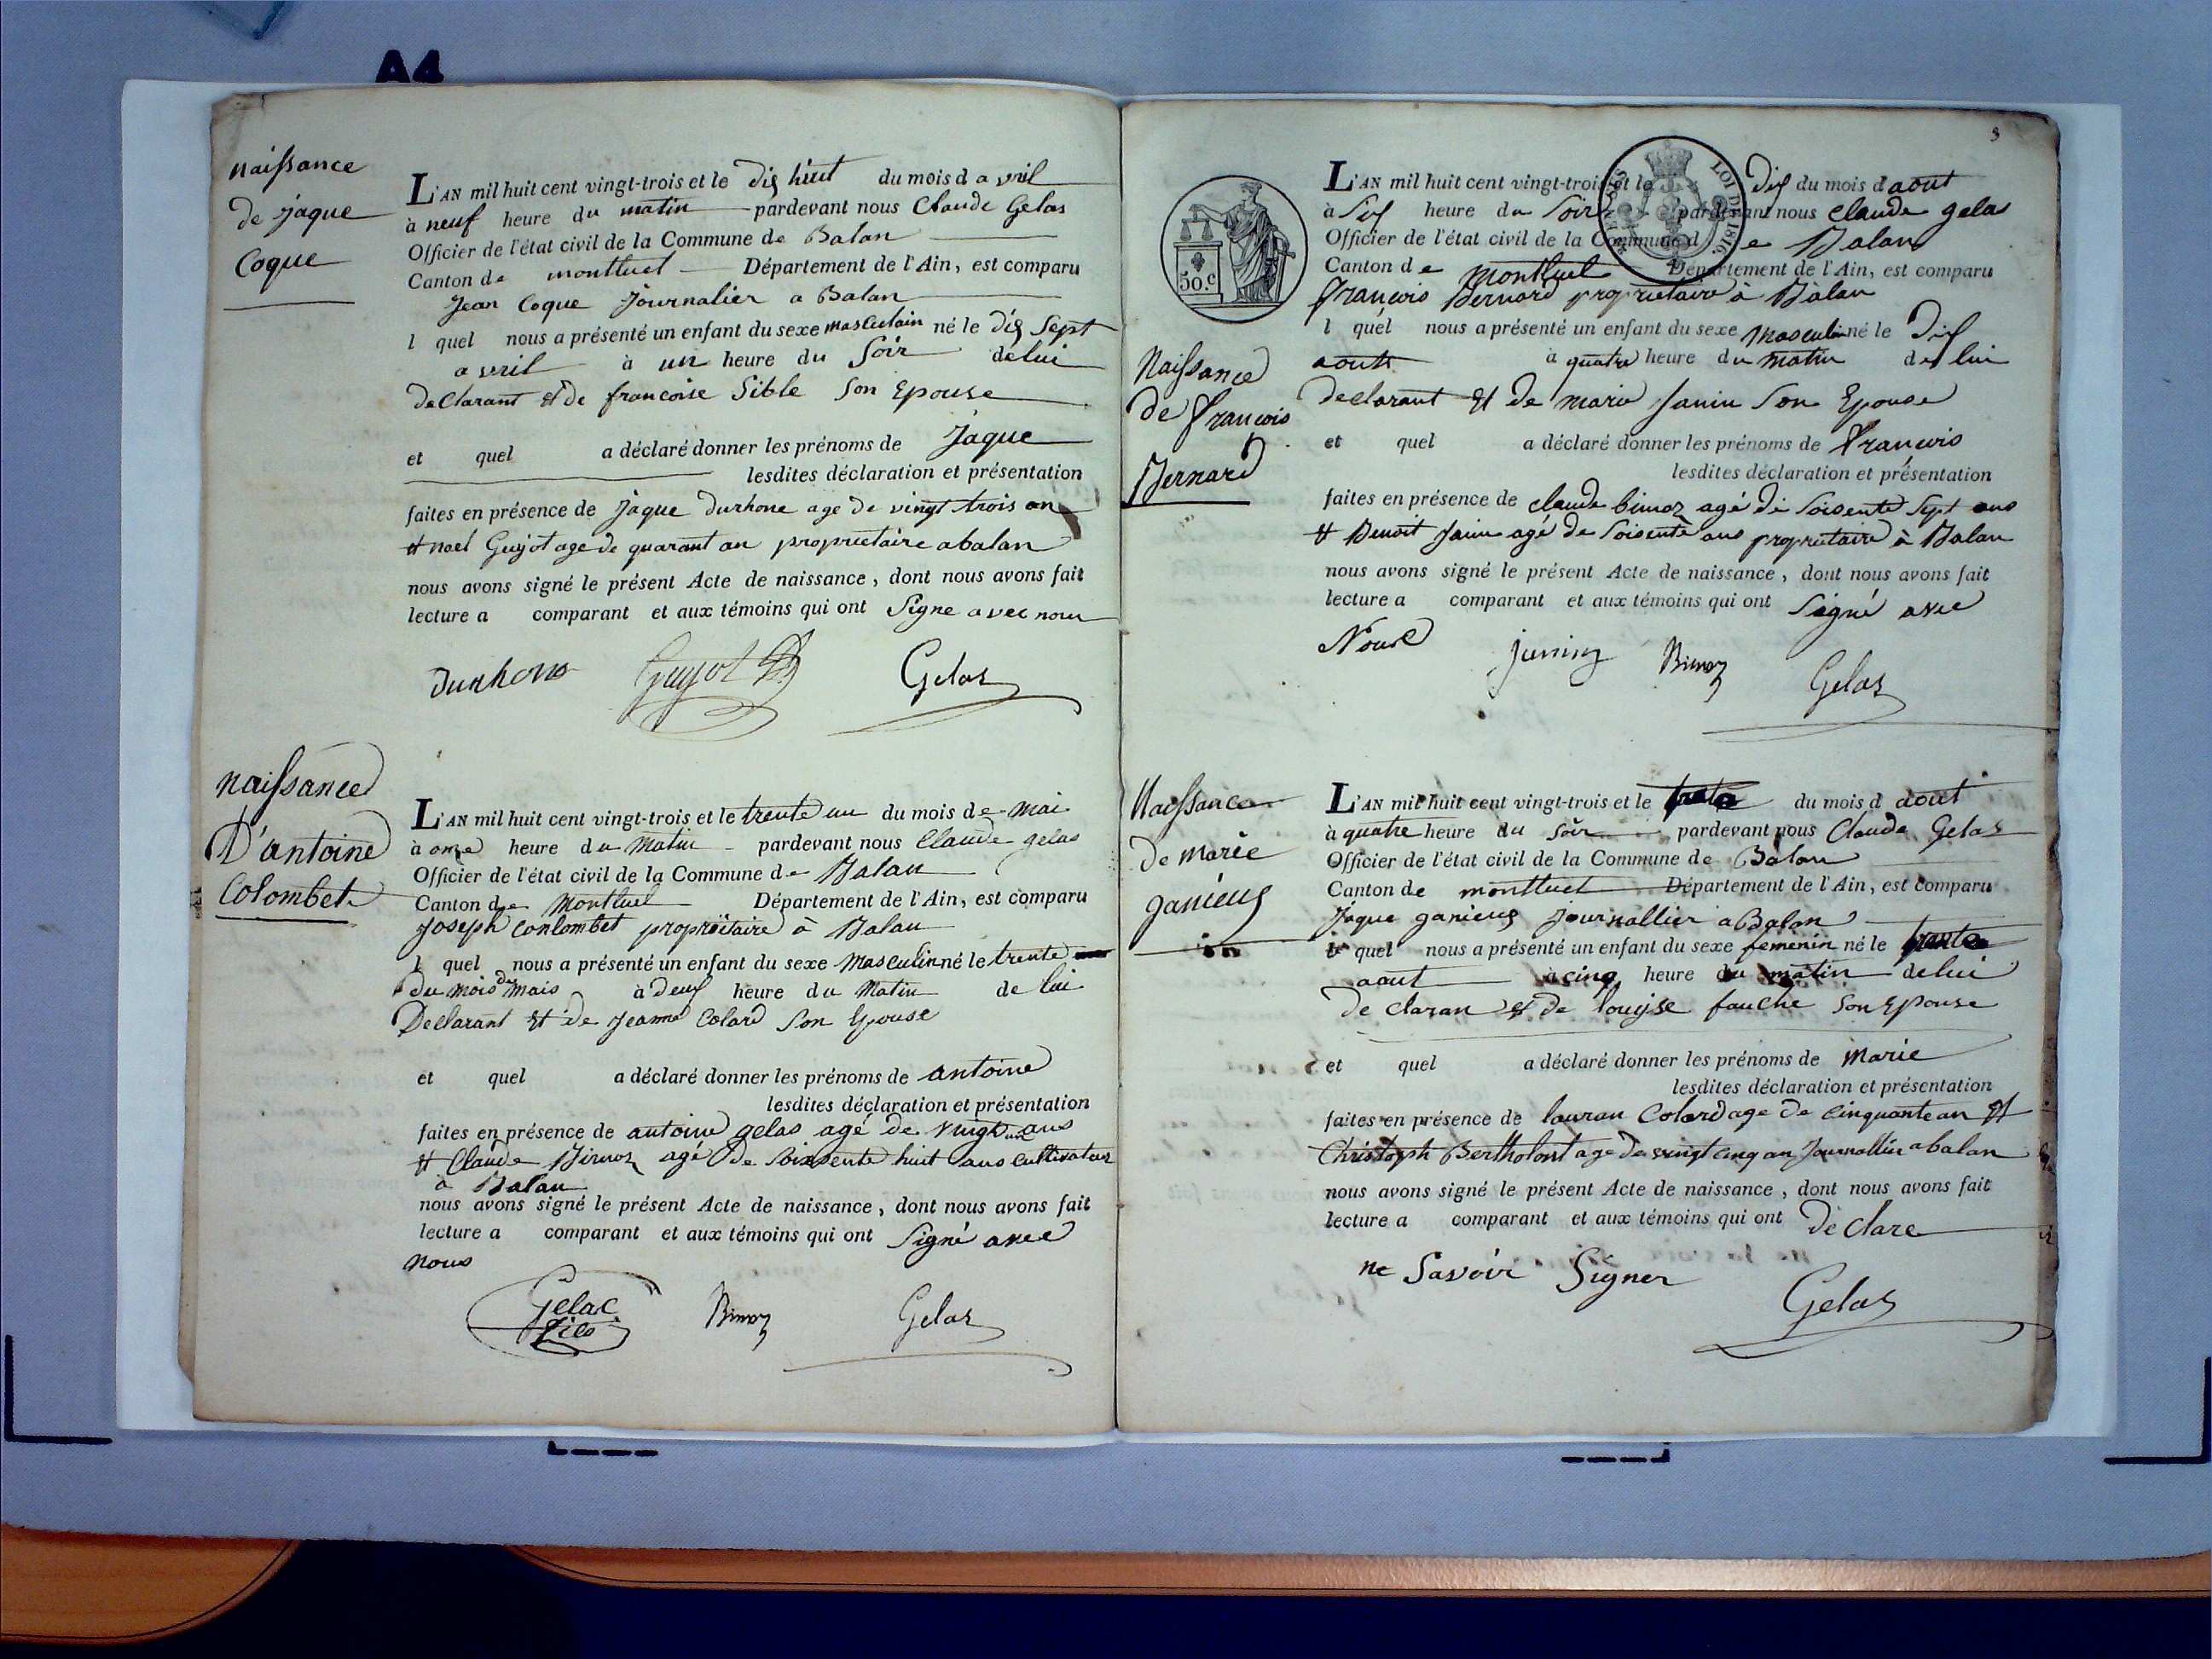 A4
naissance
de jaque
Coque
L'AN mil huit cent vingt-trois et le dix huit du mois d avril
à neuf heure du matin pardevant nous Claude Gelas
Officier de l'état civil de la Commune de Balan
Canton de montluel Département de l'Ain, est comparu
Jean Coque Journalier a Balan
l quel nous a présenté un enfant du sexe masculain né le dix Sept
avril à un heure du Soir de lui
declarant et de francoise Sible Son Epouse
et quel a déclaré donner les prénoms de Jaque
lesdites déclaration et présentation
faites en présence de Jaque durhone age de vingt trois an
et noel Guyot age de quarant an proprietaire abalan
nous avons signé le présent Acte de naissance, dont nous avons fait
lecture a comparant et aux témoins qui ont Signe avec nour
Durhone Guyot Gelas
naissance
D'antoine
Colombet
L'AN mil huit cent vingt-trois et le trente un du mois de Mai
à onze heure du Matin pardevant nous Claude gelas
Officier de l'état civil de la Commune de Balan
Canton de Montluel Département de l'Ain, est comparu
Joseph Conlombet propriètaire à Balan
l quel nous a présenté un enfant du sexe Masculin né le trente
du mois de Mais à deux heure du Matin de lui
Declarant Et de Jeanne Colard Son Epouse
et quel a déclaré donner les prénoms de antoine
lesdites déclaration et présentation
faites en présence de antoine gelas agé de vingt un ans
et Claude Birnoz agé De Soixsente huit ans Cultivateur
à Balan
nous avons signé le présent Acte de naissance, dont nous avons fait
lecture a comparant et aux témoins qui ont Signé avec
nous
Gelas fils Birnoz Gelas
3
50.c
LOI DE 1816
Naissance
de François
Bernard
L'AN mil huit cent vingt-trois et le Dix du mois d aout
à Six heure du Soir pardevant nous Claude gelas
Officier de l'état civil de la Commune de Balan
Canton de Montluel Département de l'Ain, est comparu
François Bernard proprietaire à Balan
l quel nous a présenté un enfant du sexe Masculin né le Dix
aoutt à quatre heure du Matin de lui
declarant Et de marie Janin Son Epouse
et quel a déclaré donner les prénoms de François
lesdites déclaration et présentation
faites en présence de Claude birnoz agé de Soisente Sept ans
et Benoit Janin agé de Soisente ans proprietaire à Balan
nous avons signé le présent Acte de naissance, dont nous avons fait
lecture a comparant et aux témoins qui ont Signé avec
Nous
Birnoz Gelas
Naissance
de marie
ganieux
L'AN mil huit cent vingt-trois et le trente du mois d aout
à quatre heure du Soir pardevant nous Claude Gelas
Officier de l'état civil de la Commune de Balan
Canton de montluel Département de l'Ain, est comparu
Jaque ganieux journallier a Balan
le quel nous a présenté un enfant du sexe femenin né le trante
aout à cinq heure du matin de lui
de claran et de louyse fauche Son Epouse
et quel a déclaré donner les prénoms de Marie
lesdites déclaration et présentation
faites en présence de lauran Colard age de cinquante an et
Christoph Bertholont age de vingt cinq an Journallier abalan
nous avons signé le présent Acte de naissance, dont nous avons fait
lecture a comparant et aux témoins qui ont de clare
ne Savoir Signer
Gelas